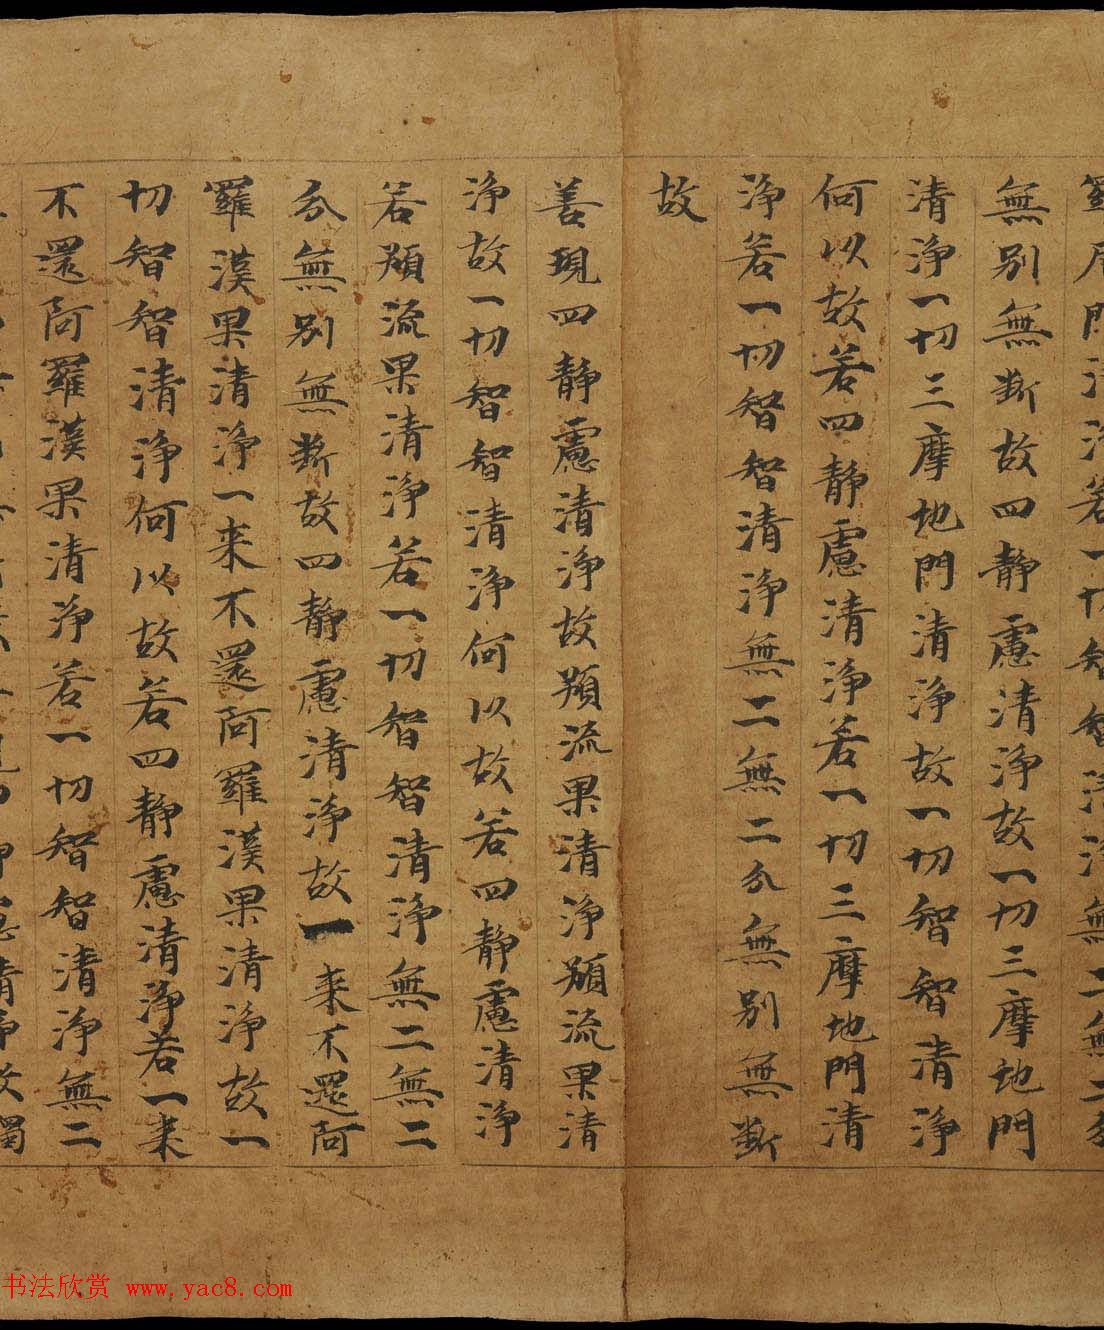 羅尼門清淨若一切智智清淨無二無二分
無別無斷故四靜慮清淨故一切三摩地門
清淨一切三摩地門清淨故一切智智清淨
何以故若四靜慮清淨若一切三摩地門清
淨若一切智智清淨無二無二分無別無斷
故
善現四靜慮清淨故預流果清淨預流果清
淨故一切智智清淨何以故若四靜慮清淨
若預流果清淨若一切智智清淨無二無二
分無別無斷故四靜慮清淨故一來不還阿
羅漢果清淨一來不還阿羅漢果清淨故一
切智智清淨何以故若四靜慮清淨若一來
不還阿羅漢果清淨若一切智智清淨無二
清淨故獨
书法欣赏 www.yac8.com